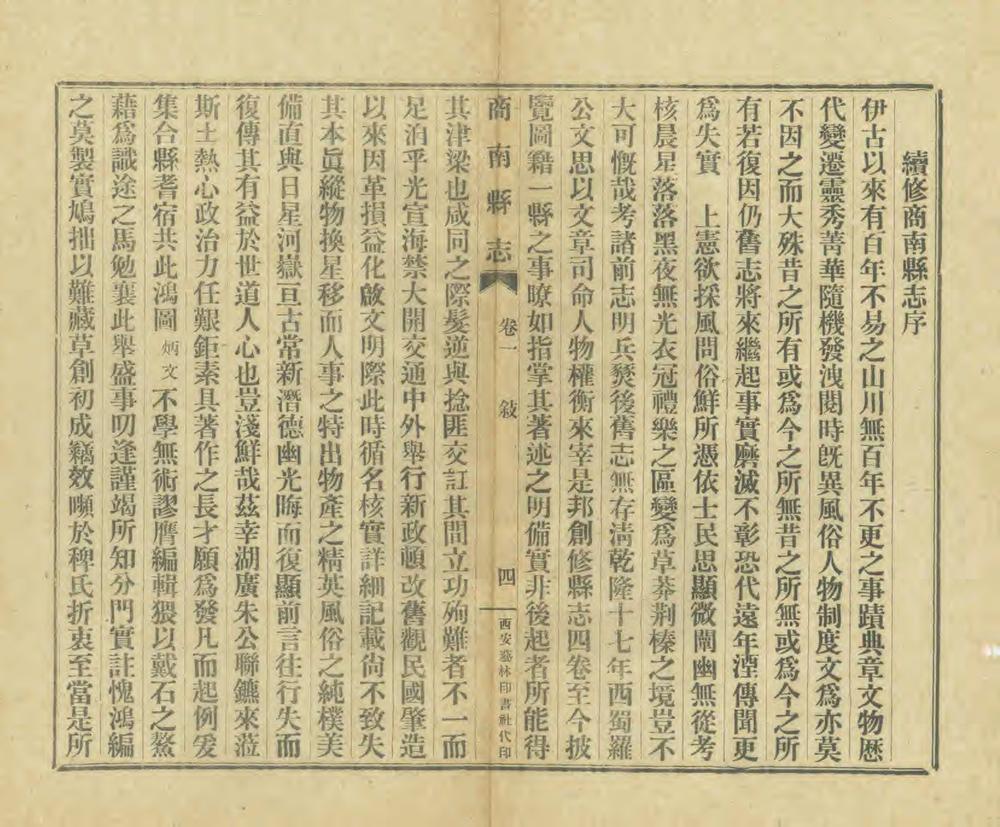 續修商南縣志序
伊古以來有百年不易之山川無百年不更之事蹟典章文物歷
代變遷靈秀菁華隨機發洩閱時旣異風俗人物制度文爲亦莫
不因之而大殊昔之所有或爲今之所無昔之所無或爲今之所
有若復因仍舊志將來繼起事實磨滅不彰恐代遠年湮傳聞更
爲失實　上憲欲採風問俗鮮所憑依士民思顯微闡幽無從考
核晨星落落黑夜無光衣冠禮樂之區變爲草莽荆榛之境豈不
大可慨哉考諸前志明兵燹後舊志無存淸乾隆十七年西蜀羅
公文思以文章司命人物權衡來宰是邦創修縣志四卷至今披
覽圖籍一縣之事瞭如指掌其著述之明備實非後起者所能得
商南縣志　卷一　敍　四　西安藝林印書社代印
其津梁也咸同之際髮逆與捻匪交訌其間立功殉難者不一而
足洎乎光宣海禁大開交通中外舉行新政頓改舊觀民國肇造
以來因革損益化啟文明際此時循名核實詳細記載尙不致失
其本眞縱物換星移而人事之特出物產之精英風俗之純樸美
備直與日星河嶽亘古常新潛德幽光晦而復顯前言往行失而
復傳其有益於世道人心也豈淺鮮哉茲幸湖廣朱公聯鑣來蒞
斯土熱心政治力任艱鉅素具著作之長才願爲發凡而起例爰
集合縣耆宿共此鴻圖炳文不學無術謬膺編輯猥以戴石之鰲
藉爲識途之馬勉襄此舉盛事叨逢謹竭所知分門實註愧鴻編
之莫製實鳩拙以難藏草創初成竊效嚬於稗氏折衷至當是所